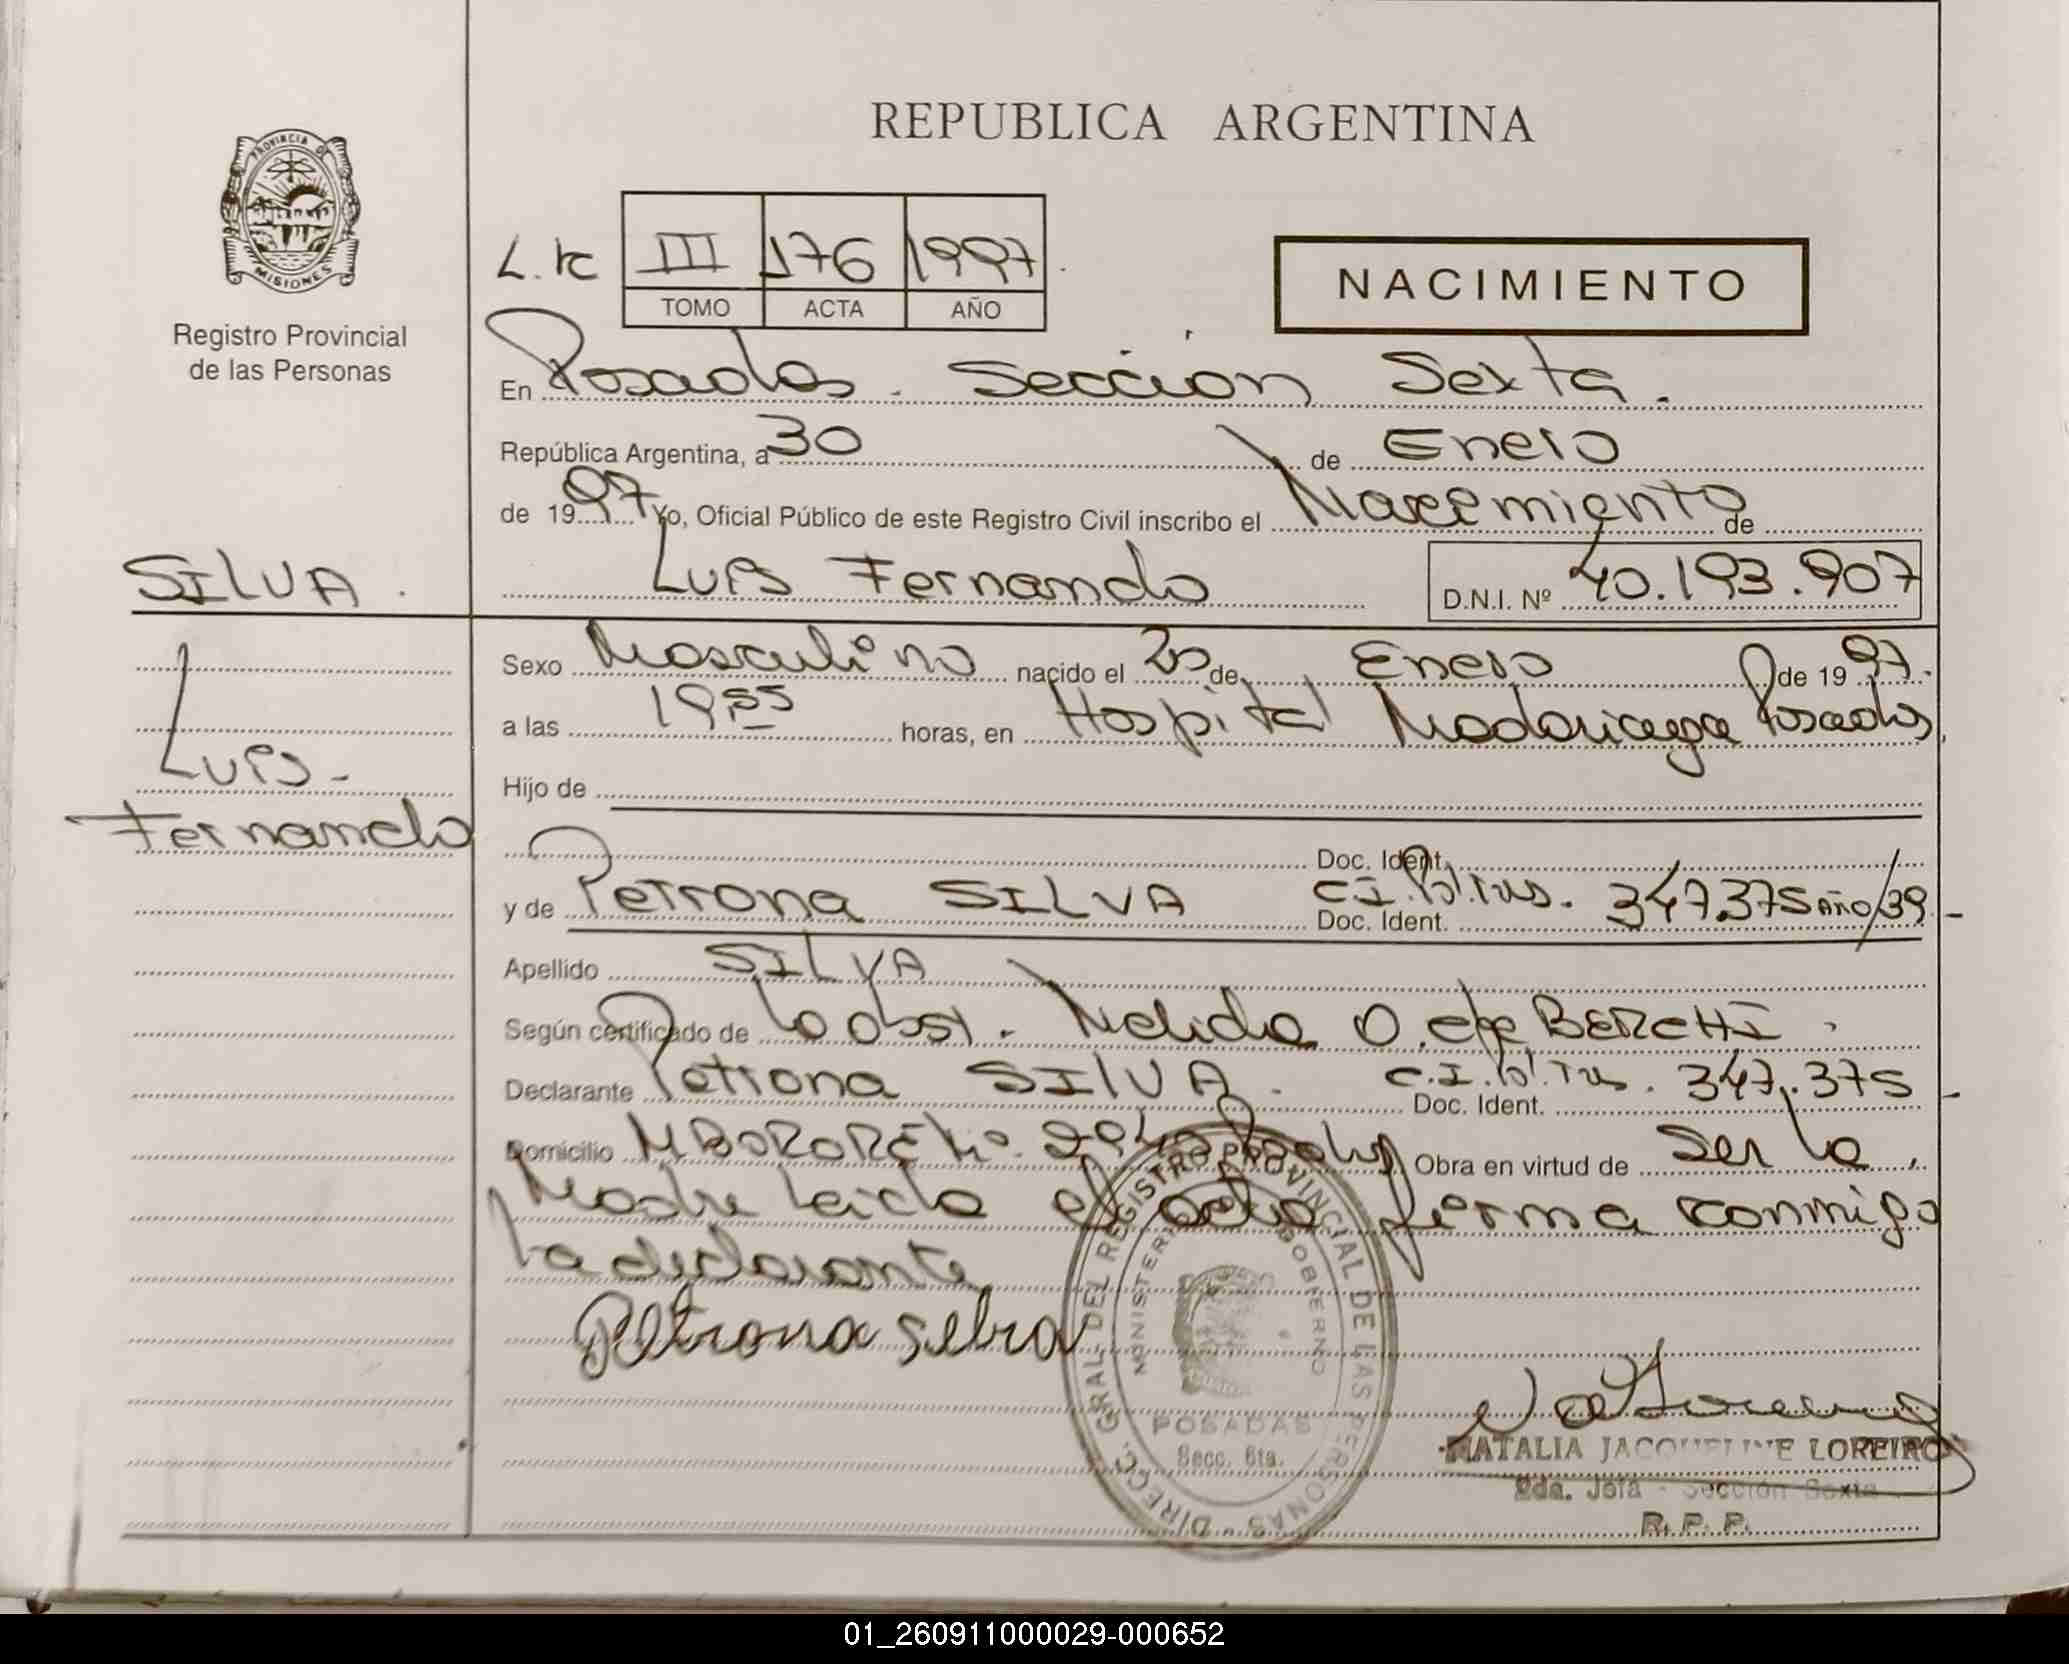 REPUBLICA ARGENTINA
PROVINCIA DE
MISIONES
Registro Provincial
de las Personas
III 176 1997
TOMO ACTA AÑO
NACIMIENTO
En Posadas. Sección Sexta.
República Argentina, a 30 de Enero
de 1997 Yo, Oficial Público de este Registro Civil inscribo el Nacimiento de
SILVA.
Luis Fernando D.N.I. Nº 40.193.907
Luis
Fernando
Sexo Masculino nacido el 20 de Enero de 1997.
a las 19,55 horas, en Hospital Madariaga Posadas
Hijo de
Doc. Ident.
y de Petrona SILVA C.I.Pol.Mis. 347.375 AÑO/39
Doc. Ident.
Apellido SILVA
Según certificado de la obst. Nelida O. de BERCHI
Declarante Petrona SILVA. C.I.Pol.Mis. 347.375
Doc. Ident.
Domicilio MBORORÉ Posadas Obra en virtud de ser la
Madre Leida el acta firma conmigo
la declarante
Petrona selva
DIRECC. GRAL. DEL REGISTRO PROVINCIAL DE LAS PERSONAS
MINISTERIO GOBIERNO
POSADAS
Secc. 6ta.
NATALIA JACQUELINE LOREIRO
2da. Jefa - Sección Sexta
R. P. P.
01_260911000029-000652